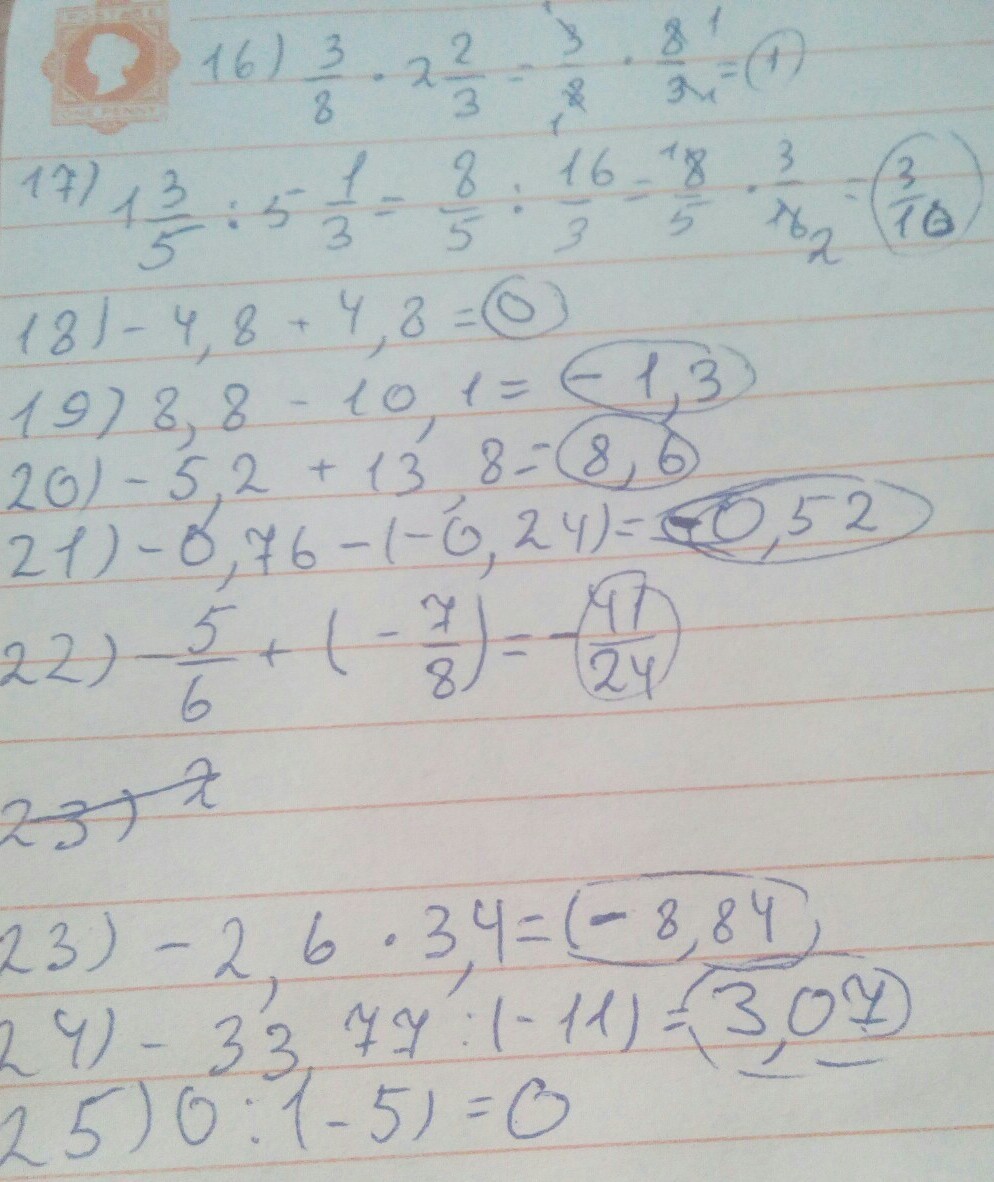 ONE PENNY
16) 3/8 · 2 2/3 = 3/8 · 8/3 = 1
17) 1 3/5 : 5 1/3 = 8/5 : 16/3 = 8/5 · 3/16 2 = 3/10
18) - 4,8 + 4,8 = 0
19) 8,8 - 10,1 = - 1,3
20) - 5,2 + 13,8 = 8,6
21) - 0,76 - (-0,24) = -0,52
22) - 5/6 + (- 7/8) = - 41/24
23) 2
23) - 2,6 · 3,4 = - 8,84
24) - 33,77 : (- 11) = 3,07
25) 0 : (- 5) = 0